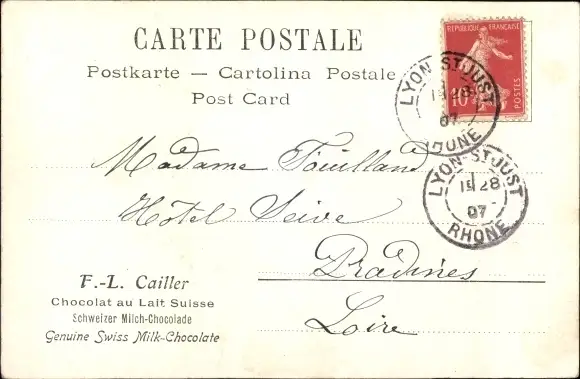 CARTE POSTALE
Postkarte — Cartolina Postale
Post Card
REPUBLIQUE FRANÇAISE
10
POSTES
LYON-ST JUST
28
07
RHONE
LYON-ST JUST
28
07
RHONE
Madame
Hôtel Seive
Pradines
Loire
F.-L. Cailler
Chocolat au Lait Suisse
Schweizer Milch-Chocolade
Genuine Swiss Milk-Chocolate